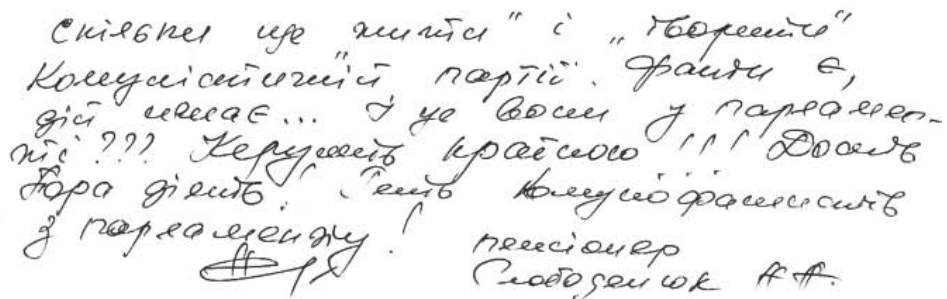 Скільки ще жити" і "творити"
Комуністичній партії. Факти є,
дій немає... І це вони у парламен-
ті??? Керують країною!!! Досить
Пора діять! Геть комунофашистів
з парламенту!
пенсіонер
Слободенюк А.А.